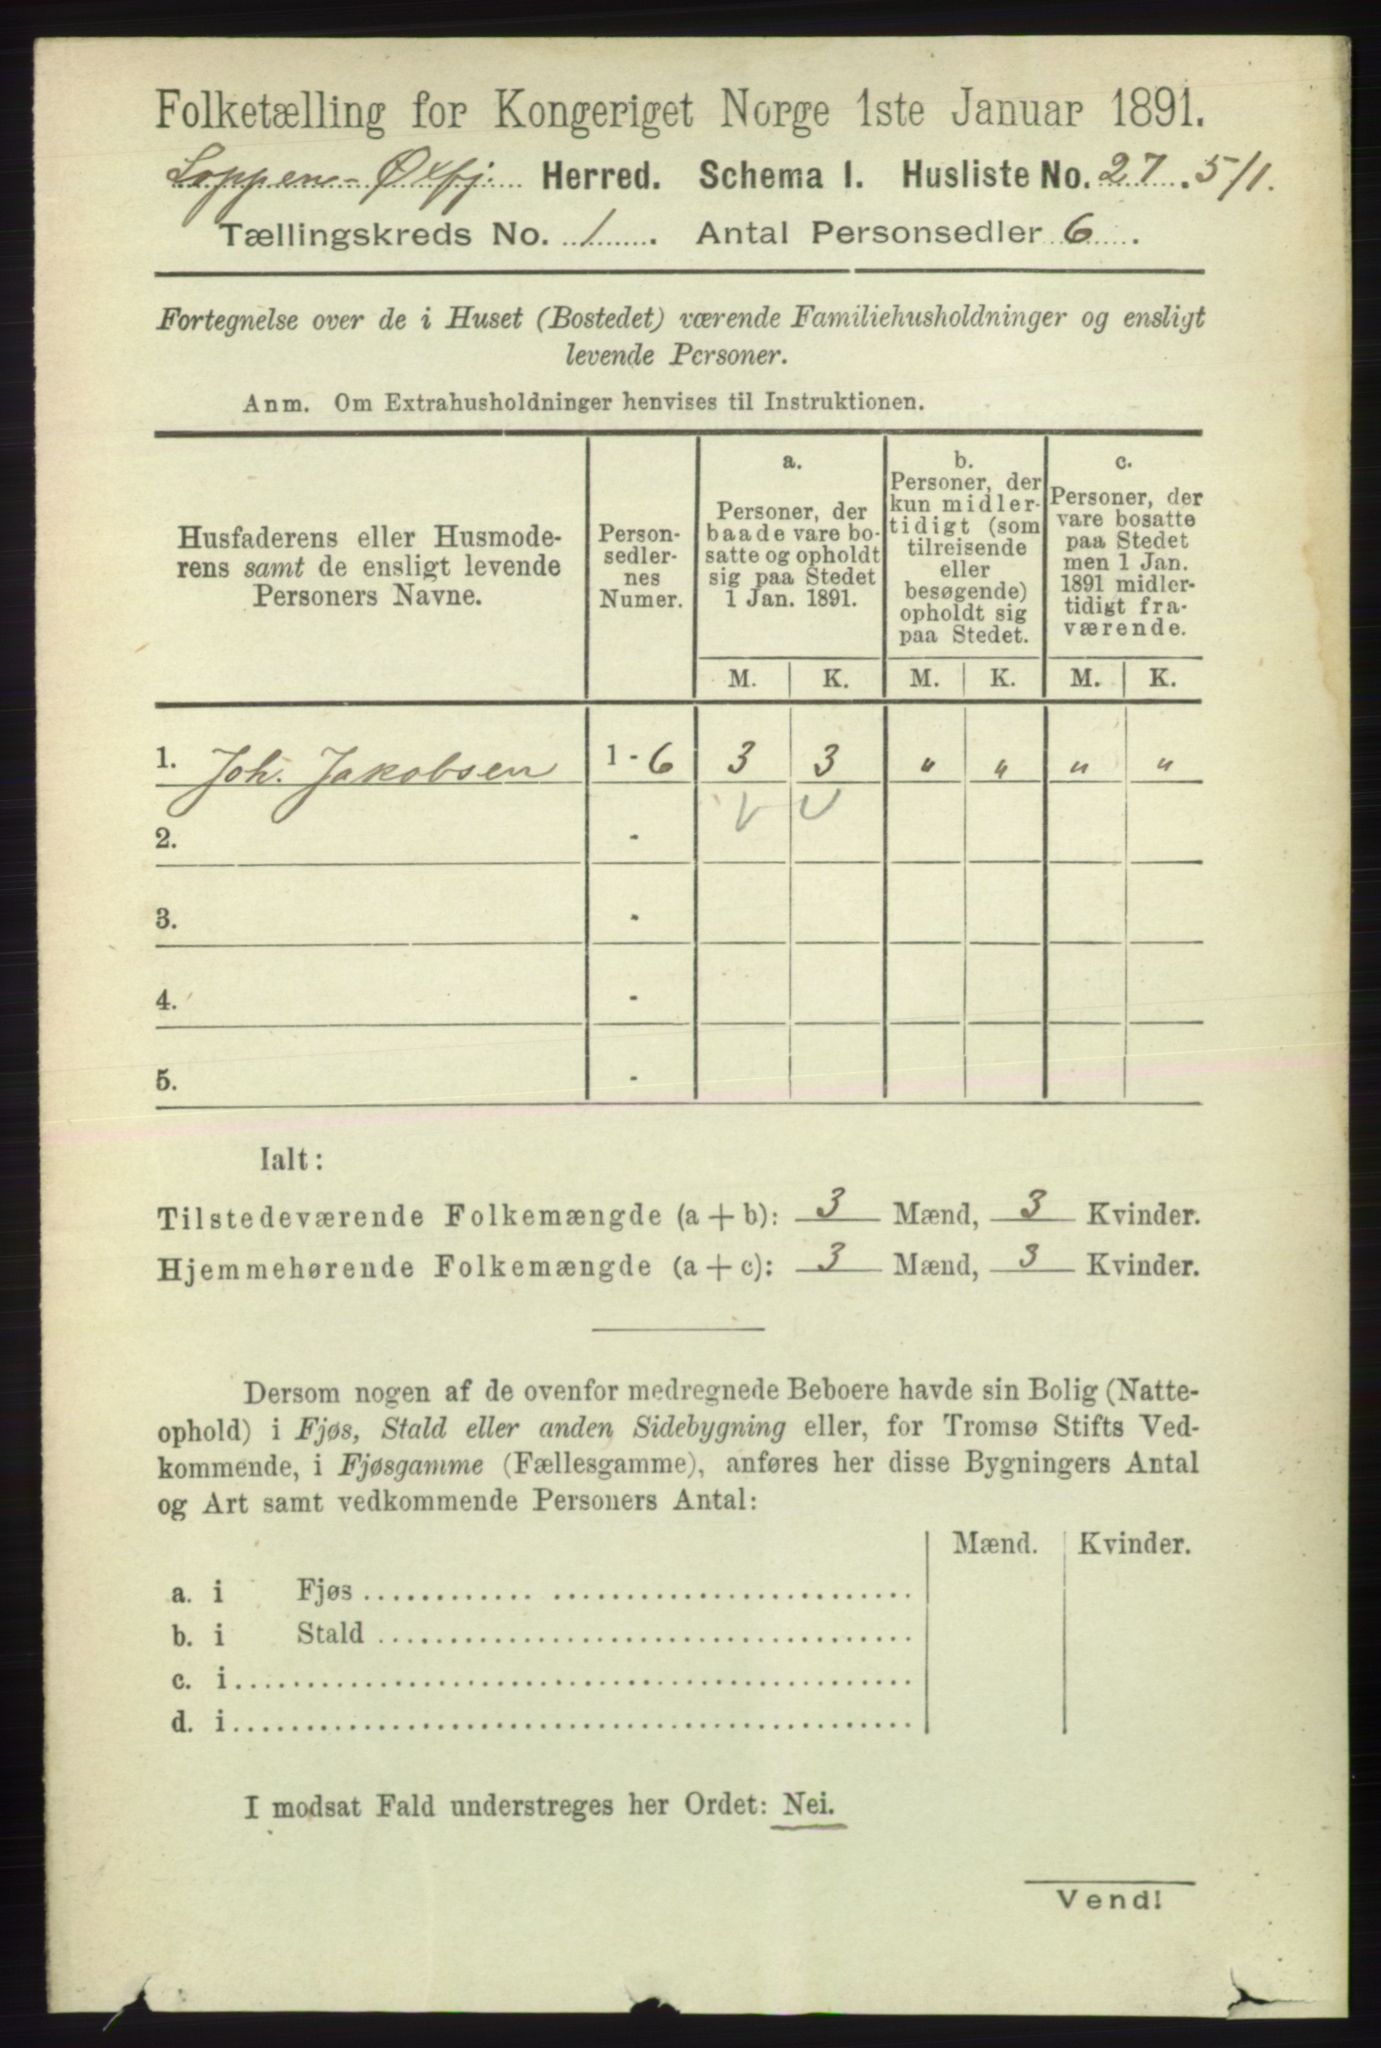 Folketælling for Kongeriget Norge 1ste Januar 1891.
Loppen-Øxfj. Herred. Schema I. Husliste No. 27. 5/1.
Tællingskreds No. 1. Antal Personsedler 6.
Fortegnelse over de i Huset (Bostedet) værende Familiehusholdninger og ensligt
levende Personer.
Anm. Om Extrahusholdninger henvises til Instruktionen.
Husfaderens eller Husmode-
rens samt de ensligt levende
Personers Navne.
Person-
sedler-
nes
Numer.
a.
Personer, der
baade vare bo-
satte og opholdt
sig paa Stedet
1 Jan. 1891.
b.
Personer, der
kun midler-
tidigt (som
tilreisende
eller
besøgende)
opholdt sig
paa Stedet.
c.
Personer, der
vare bosatte
paa Stedet
men 1 Jan.
1891 midler-
tidigt fra-
værende.
M. K. M. K. M. K.
1. Joh. Jakobsen 1 - 6 3 3 " " " "
2. -
3. -
4. -
5. -
Ialt:
Tilstedeværende Folkemængde (a + b): 3 Mænd, 3 Kvinder.
Hjemmehørende Folkemængde (a + c): 3 Mænd, 3 Kvinder.
Dersom nogen af de ovenfor medregnede Beboere havde sin Bolig (Natte-
ophold) i Fjøs, Stald eller anden Sidebygning eller, for Tromsø Stifts Ved-
kommende, i Fjøsgamme (Fællesgamme), anføres her disse Bygningers Antal
og Art samt vedkommende Personers Antal:
Mænd. Kvinder.
a. i Fjøs
b. i Stald
c. i
d. i
I modsat Fald understreges her Ordet: Nei.
Vend!